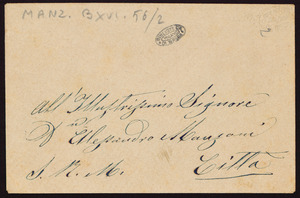 MANZ. B XVI. 56/2
2
All' Illustrissimo Signore
Dn Alessandro Manzoni
S. R. M.
Città